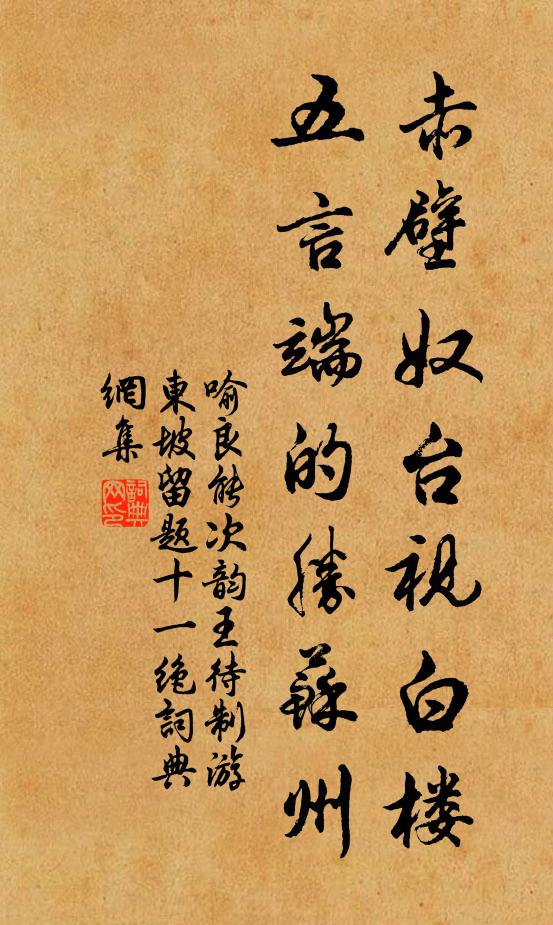 赤壁奴台视白楼
五言端的勝蘇州
喻良能次韵王待制游
東坡留题十一绝詞典
網集
詞典
网印